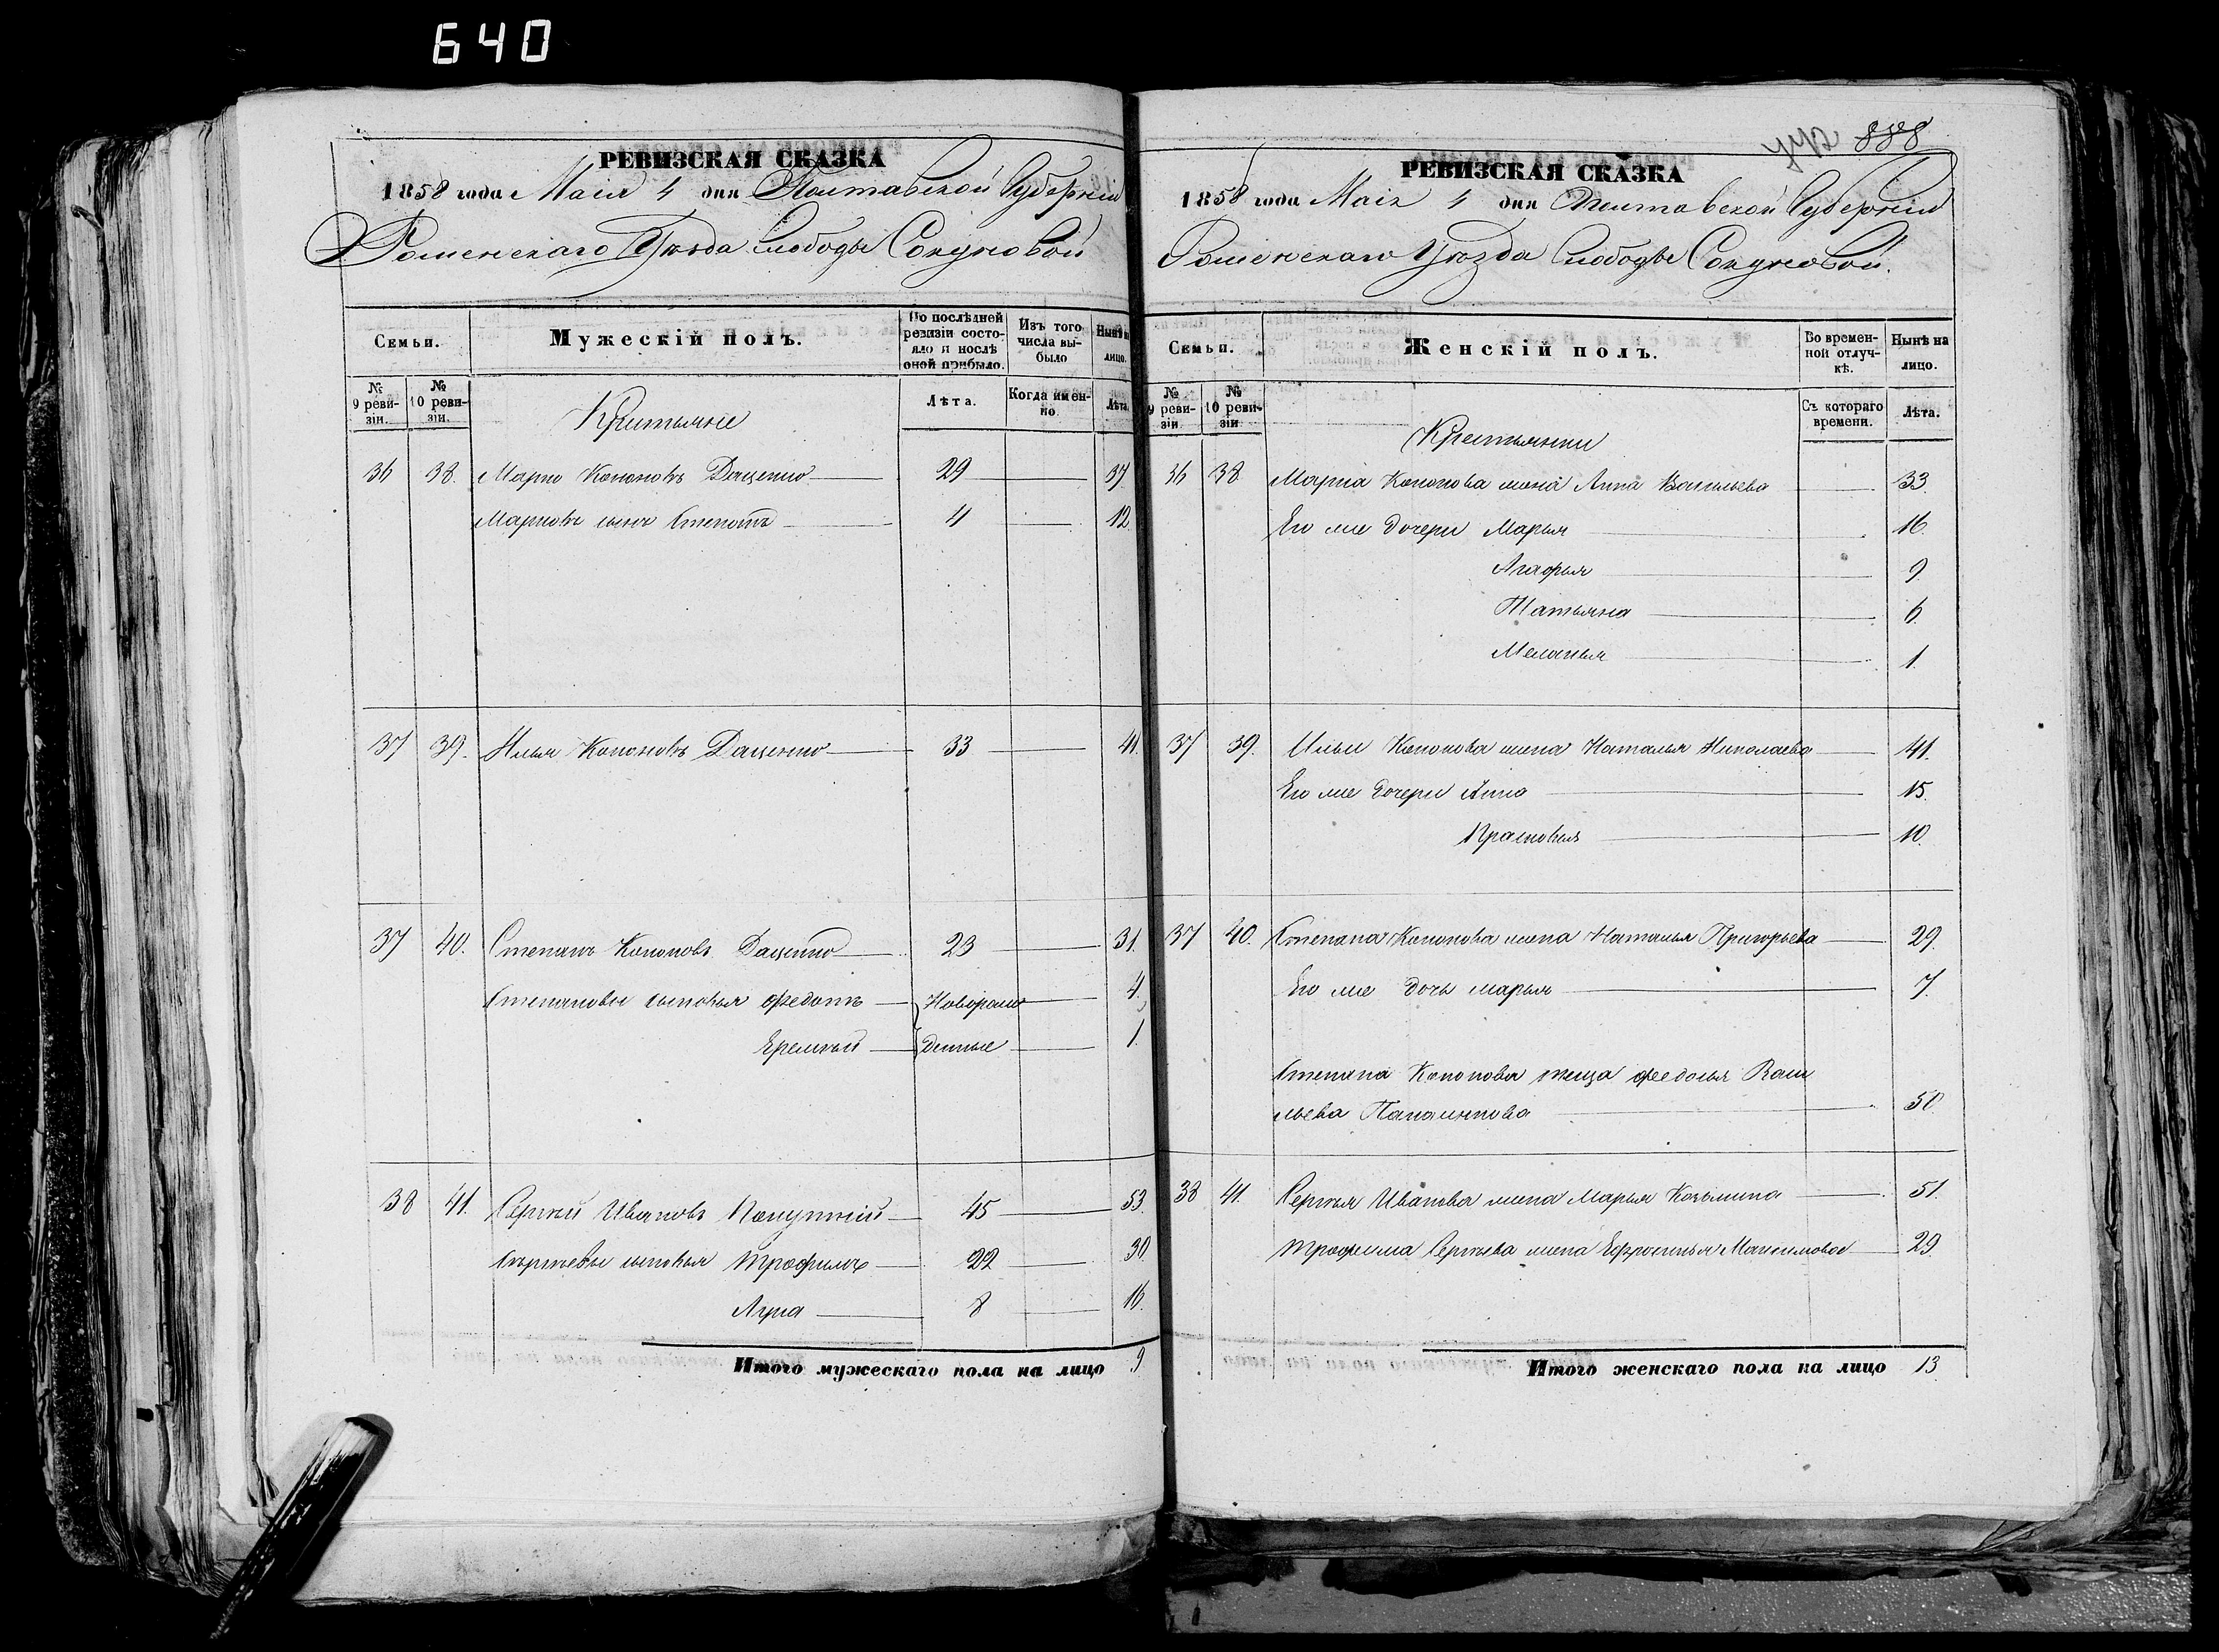 640
РЕВИЗСКАЯ СКАЗКА
1858 года Маія 4 дня Полтавской Губерніи
Роменскаго Уѣзда Слободы Сакуновой
Семьи.
Мужескій полъ.
По послѣдней ревизіи состояло и послѣ оной прибыло.
Изъ того числа выбыло
Нынѣ на лицо.
№ 9 ревизіи.
№ 10 ревизіи.
Крестьяне
Лѣта.
Когда именно.
Лѣта.
36 38. Марко Кононовъ Даценко 29 37.
Марковъ сынъ 4 12.
37 39. Илья Кононовъ Даценко 33 41.
37 40. Степанъ Кононовъ Даценко 23 31.
Степановы сыновья Федотъ Новорож 4.
Еремѣй денные 1.
38 41. Сергѣй Ивановъ 45 53.
Сергѣевы сыновья Трофимъ 22 30.
Лука 8 16.
Итого мужескаго пола на лицо 9
888
РЕВИЗСКАЯ СКАЗКА
1858 года Маія 4 дня Полтавской Губерніи
Роменскаго Уѣзда Слободы Сакуновой.
Семьи.
Женскій полъ.
Во временной отлучкѣ.
Нынѣ на лицо.
№ 9 ревизіи
№ 10 ревизіи
Крестьянки
Съ котораго времени.
Лѣта.
36 38 Марка Кононова жена Анна Васильева 33.
Его же дочери Марья 16.
Агафья 9.
Татьяна 6.
Меланья 1.
37 39. Ильи Кононова жена Наталья Николаева 41.
Его же дочери Анна 15.
Прасковья 10.
37 40. Степана Кононова жена Наталья Григорьева 29.
Его же дочь Марья 7.
Степана Кононова теща Федосья Васи
льева 50.
38 41. Сергѣя Иванова жена Марья Козьмина 51.
Трофима Сергѣева жена Ефросинья Максимова 29.
Итого женскаго пола на лицо 13